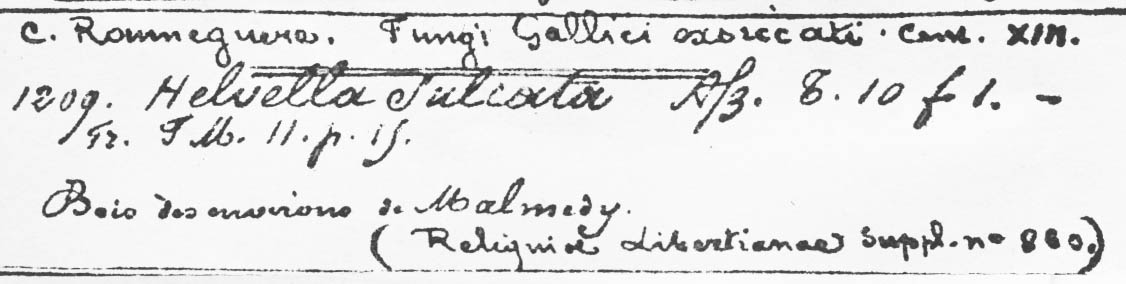 C. Roumeguere. Fungi Gallici exsiccati. Cent. XIII.
1209. Helvella Sulcata Afz. t. 10 f 1. -
Fr. S M. 11. p. 15.
Bois des environs de Malmedy.
(Reliquiæ Libertianae Suppl. no 880.)